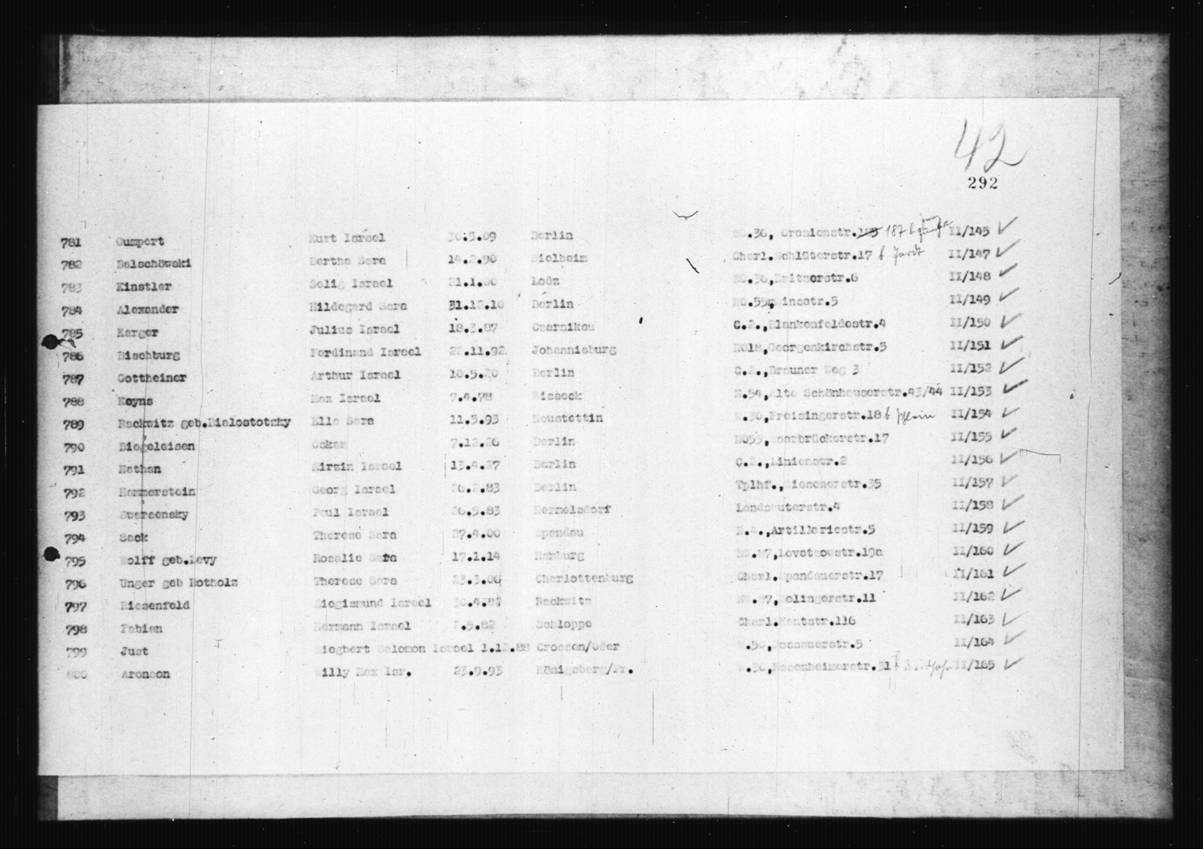 42
292
781 Gumpert Kurt Israel 30.5.09 Berlin SO.36, Oranienstr. 187 b II/145
782 Belschöwski Bertha Sara 14.2.90 Bielheim Charl.Schlüterstr.17 b II/147
783 Kinstler Selig Israel 21.1.00 Lodz SO.36,Britzerstr.6 II/148
784 Alexander Hildegard Sara 31.12.10 Berlin NO.55, II/149
785 Karger Julius Israel 18.3.87 Czarnikau C.2.,Blankenfeldestr.4 II/150
786 Bischburg Ferdinand Israel 22.11.92 Johannisburg NO18,Georgenkirchstr.5 II/151
787 Gottheiner Arthur Israel 10.5.20 Berlin C.2.,Brauner Weg 3 II/152
788 Heyne Max Israel 7.4.78 Wisseck N.54,Alte Schönhauserstr.43/44 II/153
789 Rackwitz geb.Bialostotzky Ella Sara 11.5.93 Neustettin W.30,Freisingerstr.18 b II/154
790 Biegeleisen Oskar 7.12.26 Berlin NO55,Saarbrückerstr.17 II/155
791 Nathan Israel 13.4.27 Berlin C.2.,Linienstr.2 II/156
792 Hammerstein Georg Israel 26.2.83 Berlin Tplhf., 35 II/157
793 Swarsensky Paul Israel 26.9.83 Hermelsdorf Landshuterstr.4 II/158
794 Sack Therese Sara 27.4.00 Spandau N.4.,Artilleriestr.5 II/159
795 Wolff geb.Levy Rosalie Sara 17.1.14 Hamburg NW.87,Levetzowstr.19a II/160
796 Unger geb Rotholz Therese Sara 23.3.06 Charlottenburg Charl.Spandauerstr.17 II/161
797 Riesenfeld Siegismund Israel Rackwitz NW.87,Solingerstr.11 II/162
798 Fabian Hermann Israel 2.5.82 Schloppe Charl.Kantstr.116 II/163
799 Just Siegbert Salomon Israel 1.12.88 Crossen/Oder W.50,Passauerstr.5 II/164
800 Aronson Willy Max Isr. 23.9.93 Königsberg/Pr. W.30,Rosenheimerstr.31 b II/165